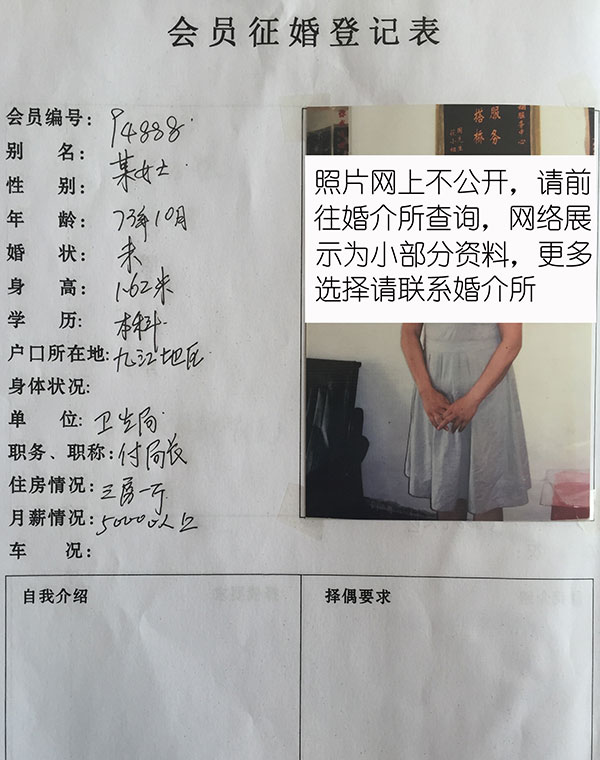 会员征婚登记表
会员编号: 94888
别 名: 某女士
性 别:
年 龄: 73年10月
婚 状: 未
身 高: 1.62米
学 历: 本科
户口所在地: 九江地区
身体状况:
单 位: 卫生局
职务、职称: 付局长
住房情况: 三房一厅
月薪情况: 5000以上
车 况:
服务
搭桥
照片网上不公开，请前
往婚介所查询，网络展
示为小部分资料，更多
选择请联系婚介所
自我介绍
择偶要求